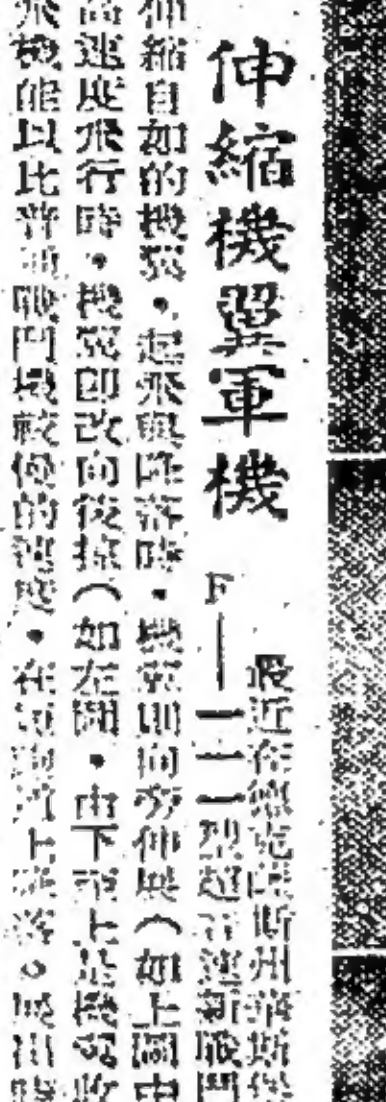 伸縮機翼軍機
最近在德克薩斯州
F——一一一型超音速新戰鬥
伸縮自如的機翼，起飛與降落時，機翼則向旁伸展（如上圖中
高速度飛行時，機翼即改向後掠（如左圖，由下至上是機翼收
飛機能以比普通戰鬥機較慢的速度，在短跑道上降落。